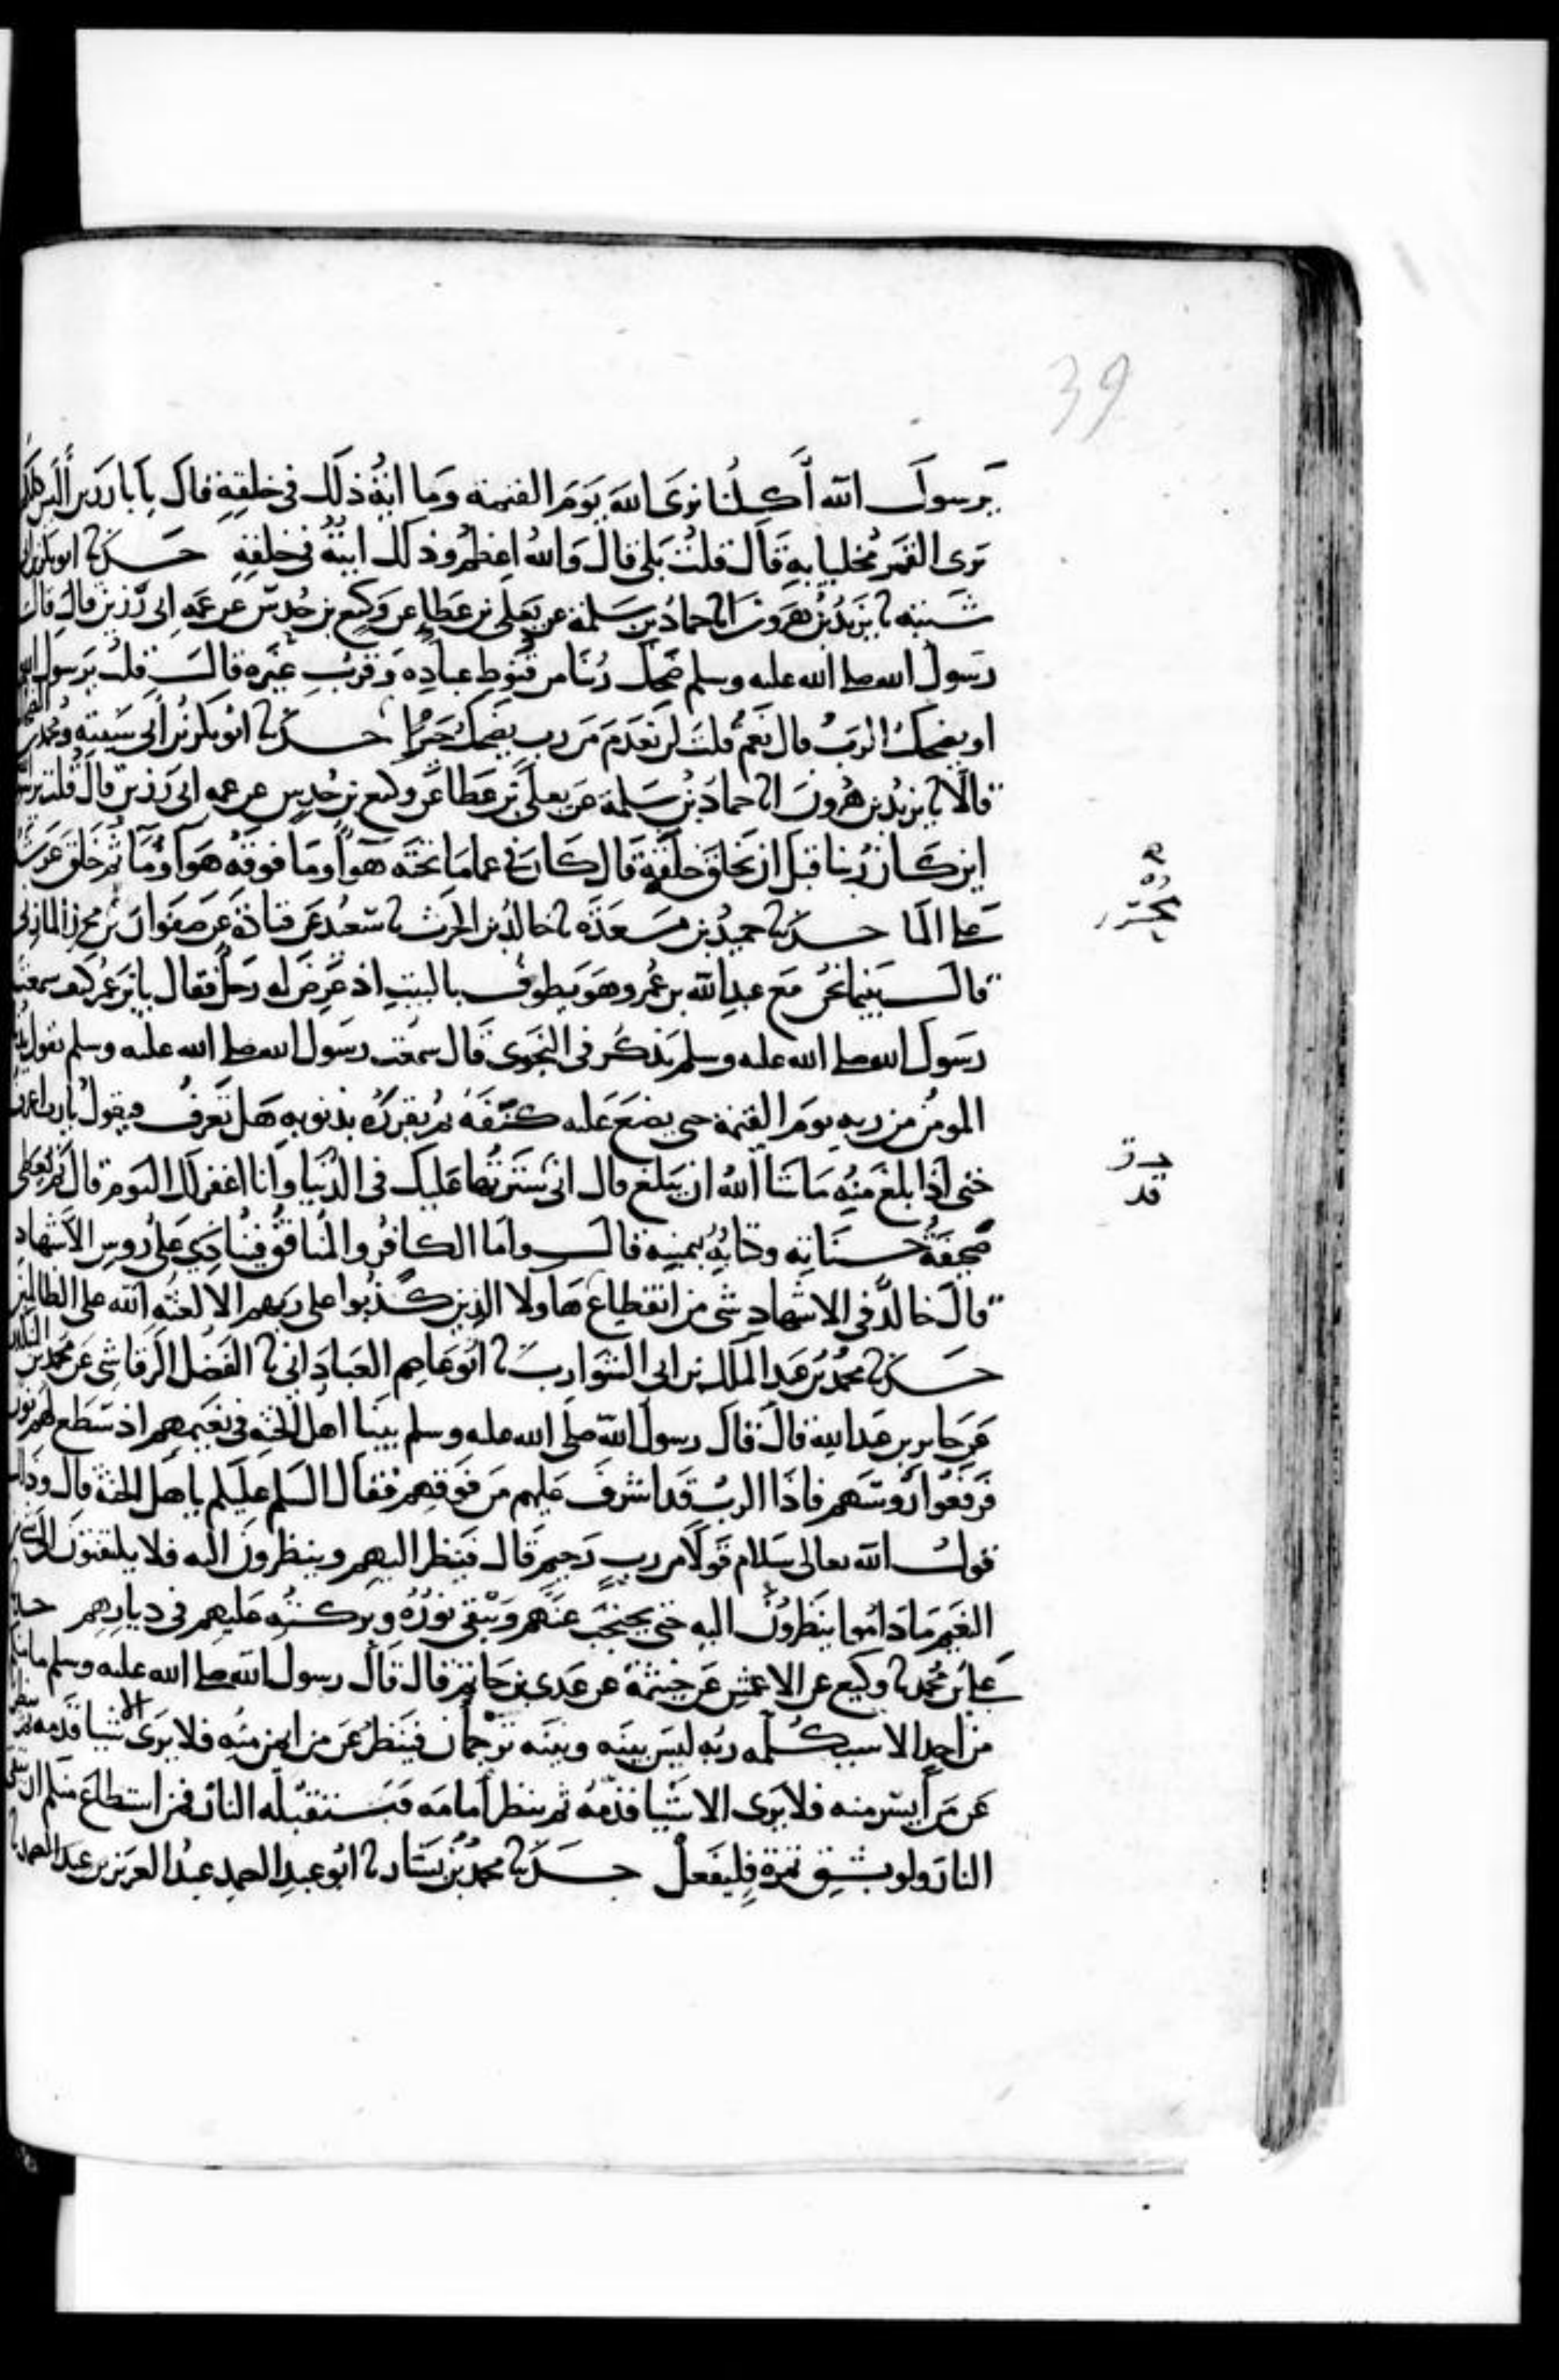 39
يرسول الله أكلنا نرى الله يوم القيمة وما اية ذلك في خلقه قال يابا رزين أليس كلكم
يرى القمر مخليا به قال قلت بلى قال والله اعظم وذلك ايته في خلقه حدثنا ابو بكر بن ابي
شيبة نا يزيد بن هرون انا حماد بن سلمة عن يعلى بن عطاء عن وكيع بن حدس عن عمه ابي رزين قال قال
رسول الله صلى الله عليه وسلم ضحك ربنا من قنوط عباده وقرب غيره قال قلت يرسول الله
او يضحك الرب قال نعم قلت لن نعدم من رب يضحك خيرا حدثنا ابو بكر بن أبي شيبة ومحمد بن الصباح
قالا نا يزيد بن هرون انا حماد بن سلمة عن يعلى بن عطا عن وكيع بن حدس عن عمه ابي رزين قال قلت يرسول الله
اين كان ربنا قبل ان يخلق خلقه قال كان في عما ما تحته هوا وما فوقه هوا وما ثم خلق عرشه
على الما حدثنا حميد بن مسعدة نا خالد بن الحرث نا سعيد عن قتادة عن صفوان بن محرز المازني
قال بينما نحن مع عبد الله بن عمر وهو يطوف بالبيت اذ عرض له رجل فقال يابن عمر كيف سمعت
رسول الله صلى الله عليه وسلم يذكر في النجوى قال سمعت رسول الله صلى الله عليه وسلم يقول يدنى
المومن من ربه يوم القيمة حتى يضع عليه كنفه ثم يقرره بذنوبه هل تعرف فيقول يارب اعرف
حتى اذا بلغ منه ما شا الله ان يبلغ قال اني سترتها عليك في الدنيا وانا اغفر لك اليوم قال ثم يعطى
صحيفة حسناته وكتابه بيمينه قال واما الكافر والمنافق فينادي على روس الاشهاد
قال خالد في الاشهاد شي من انقطاع هاولا الذين كذبوا على ربهم الا لعنة الله على الظالمين
حدثنا محمد بن عبد الملك بن ابي الشوارب نا ابو عاصم العباداني نا الفضل الرقاشي عن محمد بن المنكدر
عن جابر بن عبد الله قال قال رسول الله صلى الله عليه وسلم بينا اهل الجنة في نعيمهم اذ سطع لهم نور
فرفعوا روسهم فاذا الرب قد اشرف عليهم من فوقهم فقال السلم عليكم ياهل الجنة قال وذلك
قول الله تعالى سلام قولا من رب رحيم قال فينظر اليهم وينظرون اليه فلا يلتفتون الى شي من
النعيم ما داموا ينظرون اليه حتى يحتجب عنهم ويبقى نوره وبركته عليهم في ديارهم حدثنا
علي بن محمد نا وكيع عن الاعمش عن خيثمة عن عدي بن حاتم قال قال رسول الله صلى الله عليه وسلم ما منكم
من احد الا سيكلمه ربه ليس بينه وبينه ترجمان فينظر عن من ايمن منه فلا يرى الا شيا قدمه ثم ينظر
عن من أيسر منه فلا يرى الا شيا قدمه ثم ينظر أمامه فتستقبله النار فمن استطاع منكم ان يتقي
النار ولو بشق تمرة فليفعل حدثنا محمد بن بشار نا ابو عبد الصمد عبد العزيز بن عبد الصمد نا